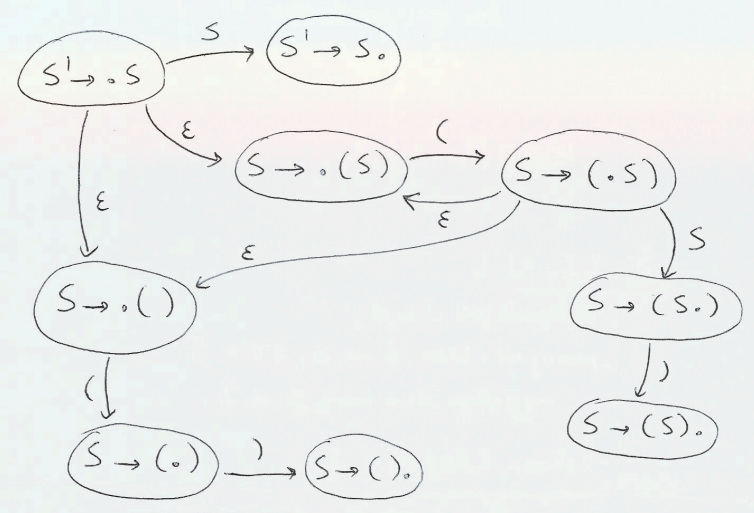 S
S' → . S
S' → S.
ε
(
S → . (S)
S → (. S)
ε
ε
ε
S
S → . ( )
S → (S.)
(
)
S → (S).
S → (.)
)
S → ( ).